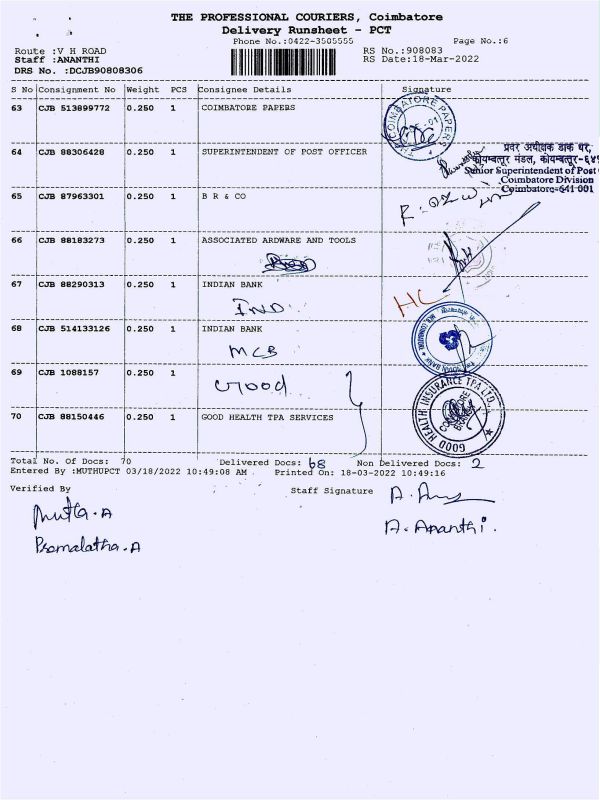 THE PROFESSIONAL COURIERS, Coimbatore
Delivery Runsheet - PCT
Phone No.:0422-3505555 Page No.:6
Route :V H ROAD RS No.:908083
Staff :ANANTHI RS Date:18-Mar-2022
DRS No. :DCJB90808306
S No Consignment No Weight PCS Consignee Details Signature
63 CJB 513899772 0.250 1 COIMBATORE PAPERS
COIMBATORE PAPERS
64 CJB 88306428 0.250 1 SUPERINTENDENT OF POST OFFICER
प्रवर अधीक्षक डाक घर,
कोयम्बत्तूर मंडल, कोयम्बत्तूर-६४१
Senior Superintendent of Post
Coimbatore Division
Coimbatore-641 001
65 CJB 87963301 0.250 1 B R & CO
66 CJB 88183273 0.250 1 ASSOCIATED ARDWARE AND TOOLS
67 CJB 88290313 0.250 1 INDIAN BANK
IND. HC
68 CJB 514133126 0.250 1 INDIAN BANK
MCB
INDIAN BANK
69 CJB 1088157 0.250 1
Good
GOOD HEALTH INSURANCE TPA LTD.,
COIMBATORE
BRANCH
70 CJB 88150446 0.250 1 GOOD HEALTH TPA SERVICES
Total No. Of Docs: 70 Delivered Docs: 68 Non Delivered Docs: 2
Entered By :MUTHUPCT 03/18/2022 10:49:08 AM . Printed On: 18-03-2022 10:49:16
Verified By Staff Signature
A. Ananthi.
Premalatha.A